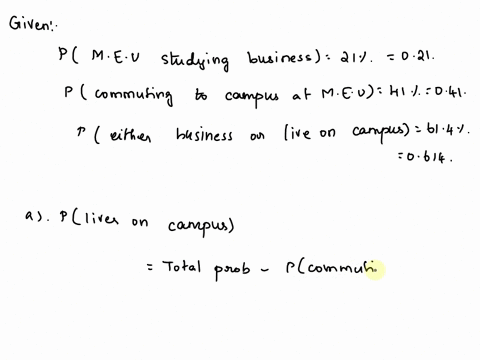 Given:
P( M.E.U studying business) = 21% = 0.21.
P( commuting to campus at M.E.U) = 41% = 0.41.
P( either business or live on campus) = 61.4%
= 0.614.
a). P( lives on campus)
= Total prob - P(commuti